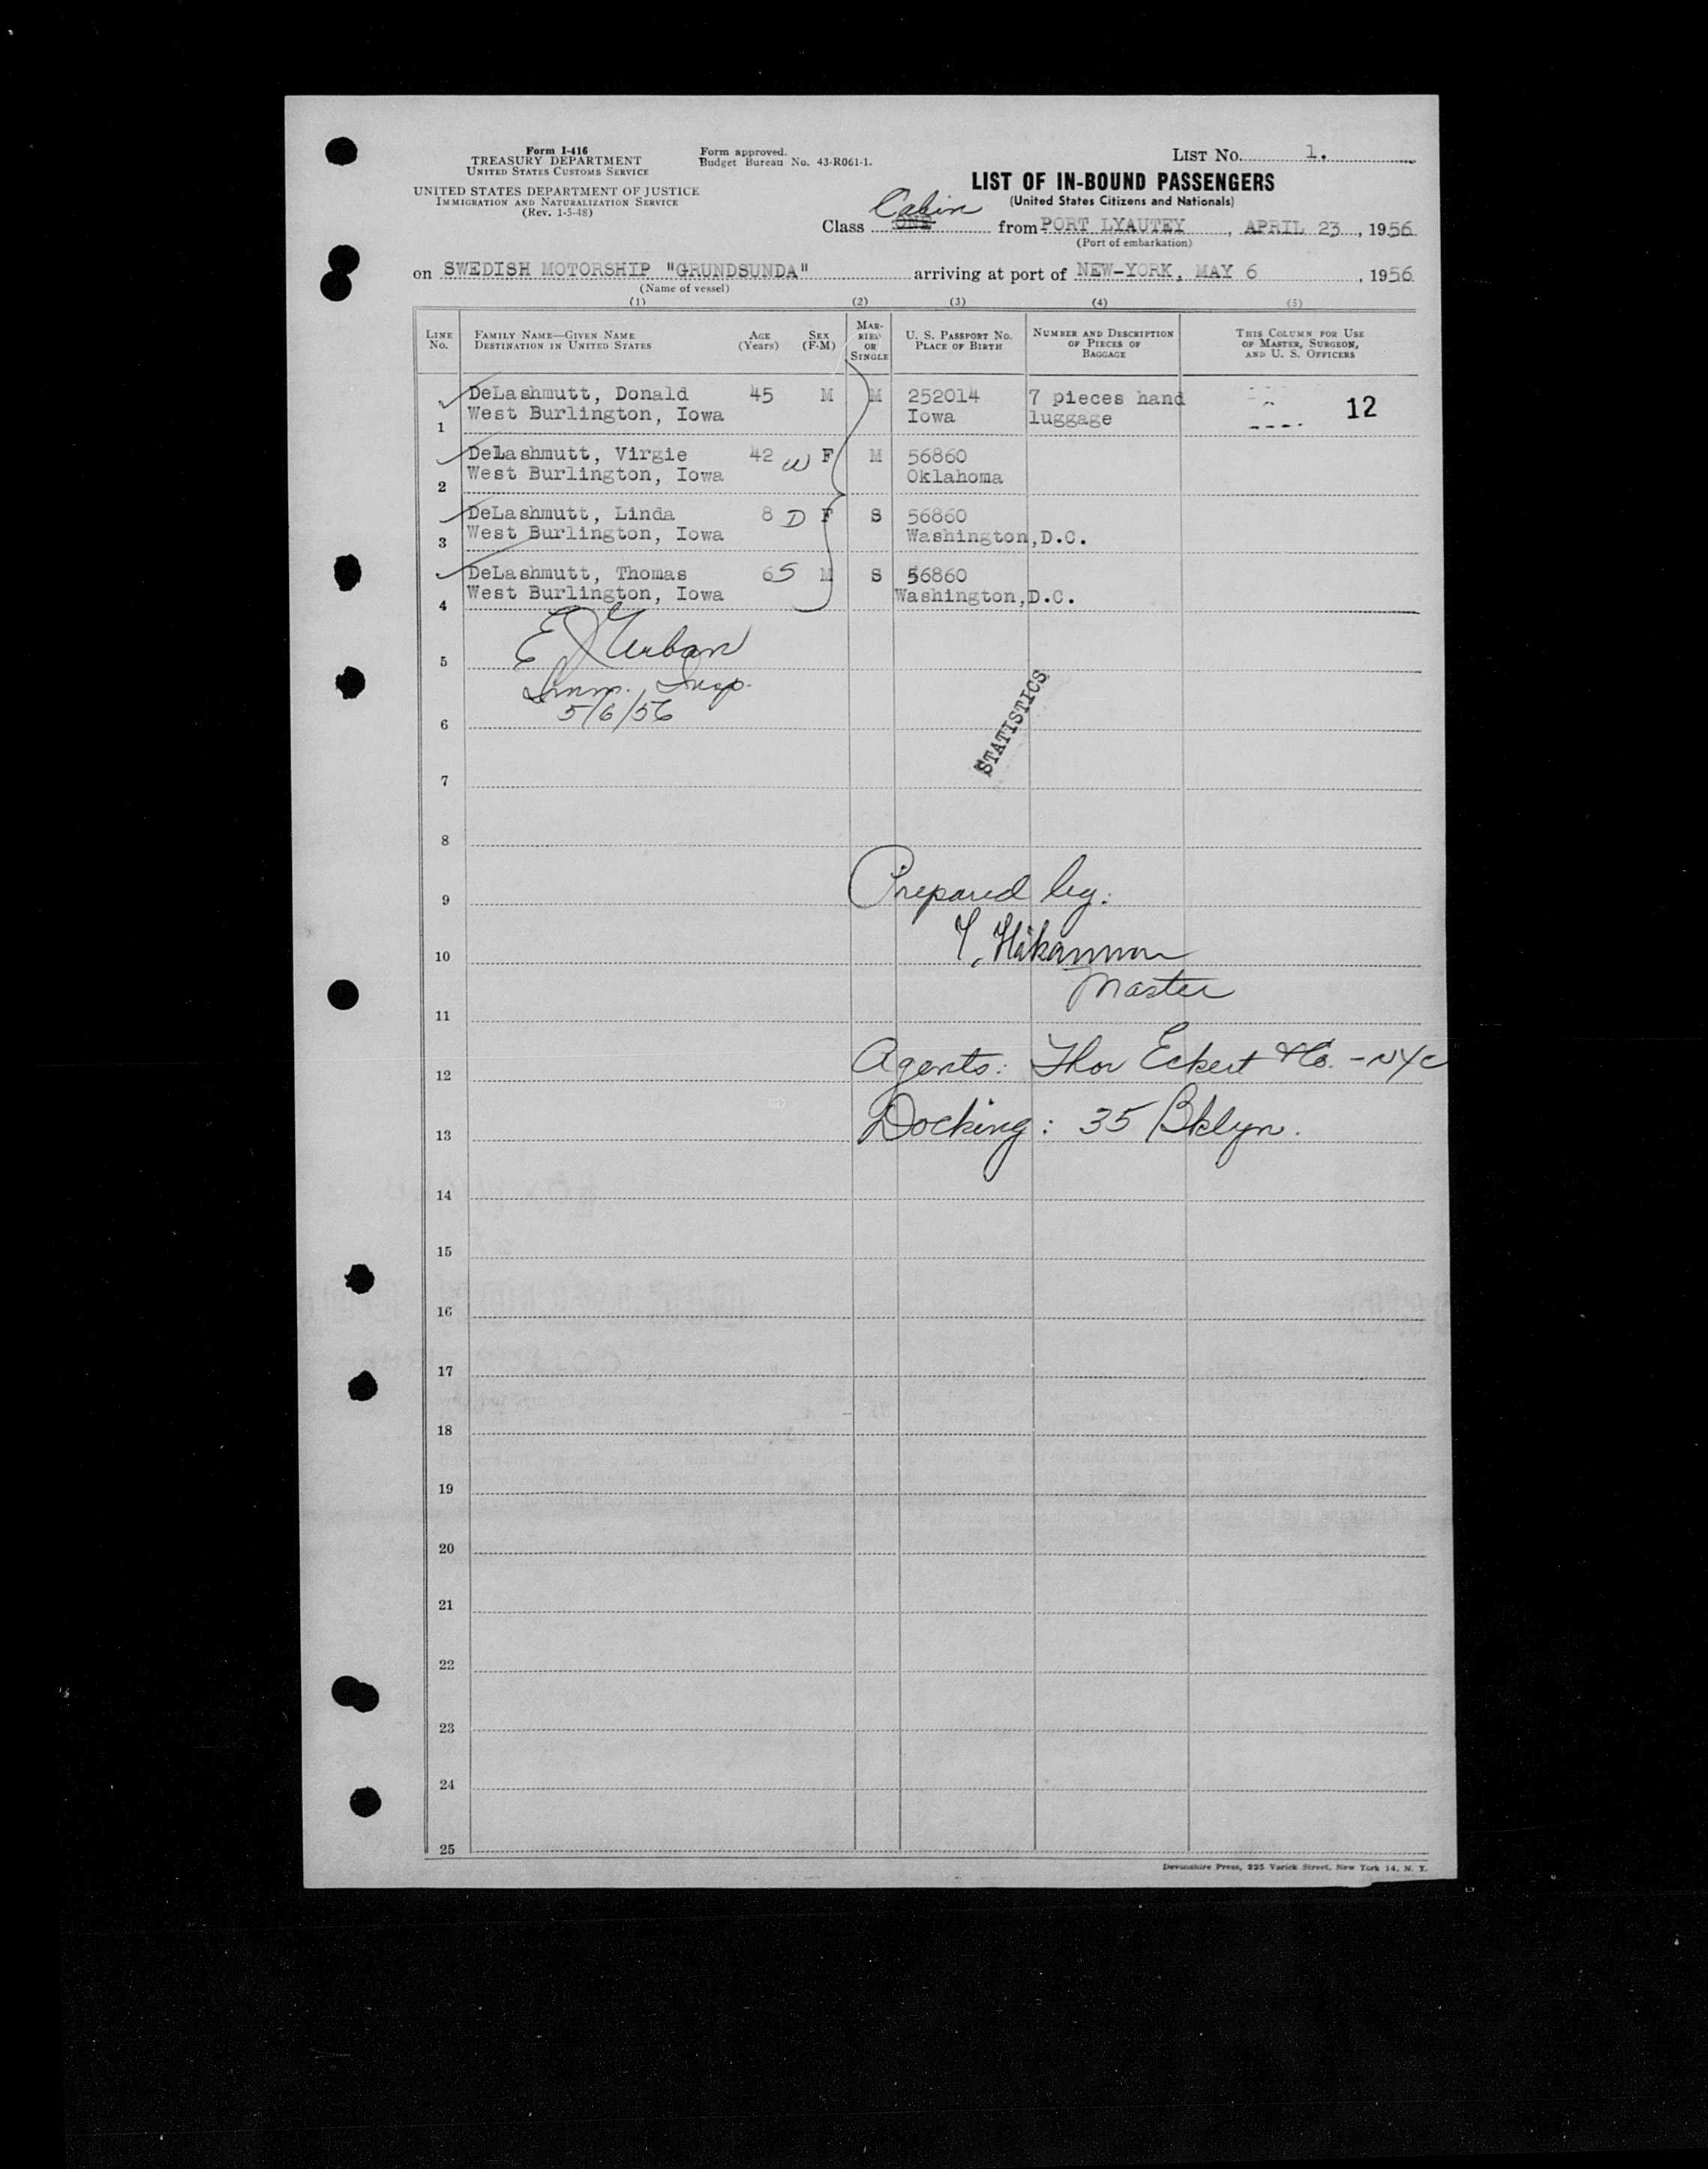 Form I-416
TREASURY DEPARTMENT
UNITED STATES CUSTOMS SERVICE
UNITED STATES DEPARTMENT OF JUSTICE
IMMIGRATION AND NATURALIZATION SERVICE
(Rev. 1-5-48)
Form approved.
Budget Bureau No. 43-R061-1.
LIST No. 1.
LIST OF IN-BOUND PASSENGERS
(United States Citizens and Nationals)
Cabin
Class ONE from PORT LYAUTEY, APRIL 23, 1956
(Port of embarkation)
on SWEDISH MOTORSHIP "GRUNDSUNDA" arriving at port of NEW-YORK, MAY 6, 1956
(Name of vessel)
(1) (2) (3) (4) (5)
LINE No. FAMILY NAME—GIVEN NAME DESTINATION IN UNITED STATES AGE (Years) SEX (F-M) MARRIED OR SINGLE U. S. PASSPORT NO. PLACE OF BIRTH NUMBER AND DESCRIPTION OF PIECES OF BAGGAGE THIS COLUMN FOR USE OF MASTER, SURGEON, AND U. S. OFFICERS
DeLashmutt, Donald 45 M M 252014 7 pieces hand 12
1 West Burlington, Iowa Iowa luggage
DeLashmutt, Virgie 42 W F M 56860
2 West Burlington, Iowa Oklahoma
DeLashmutt, Linda 8 D F S 56860
3 West Burlington, Iowa Washington, D.C.
DeLashmutt, Thomas 6 S M S 56860
4 West Burlington, Iowa Washington, D.C.
5 E J Urban
Imm. Insp.
6 5/6/56
STATISTICS
7
8
9 Prepared by:
10 Håkansson
Master
11
12 Agents: Thor Eckert & Co. - NYC
13 Docking: 35 Bklyn.
14
15
16
17
18
19
20
21
22
23
24
25
Devonshire Press, 225 Varick Street, New York 14, N. Y.